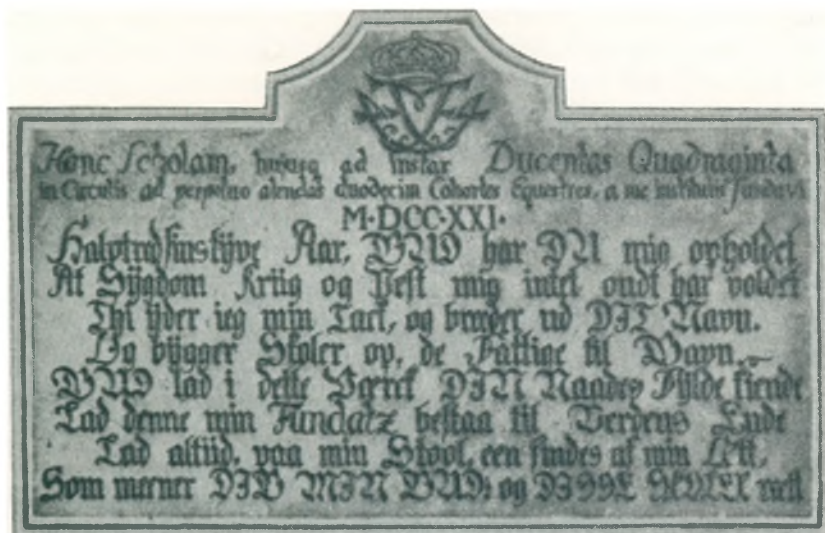 Hanc Scholam, hujusq ad instar Ducentas Quadraginta
in Circulis ad perpetuo alendas duodecim Cohortes Equestres, a me institutis fundavi
M·DCC·XXI·
Halvtredsinstyve Aar, GUD har DU mig opholdet
At Sygdom Kriig og Pest mig intet ondt har voldet
Thi yder ieg min Tack, og breder ud DIT Navn.
Og bygger Skoler op, de Fattige til Gavn.
GUD lad i dette Værck DIN Naades Fylde kiende
Lad denne min Fundatz bestaa til Verdens Ende
Lad altiid, paa min Skool, een findes af min Ætt,
Som meener DIG MIN GUD: og DISSE SKOLER rætt